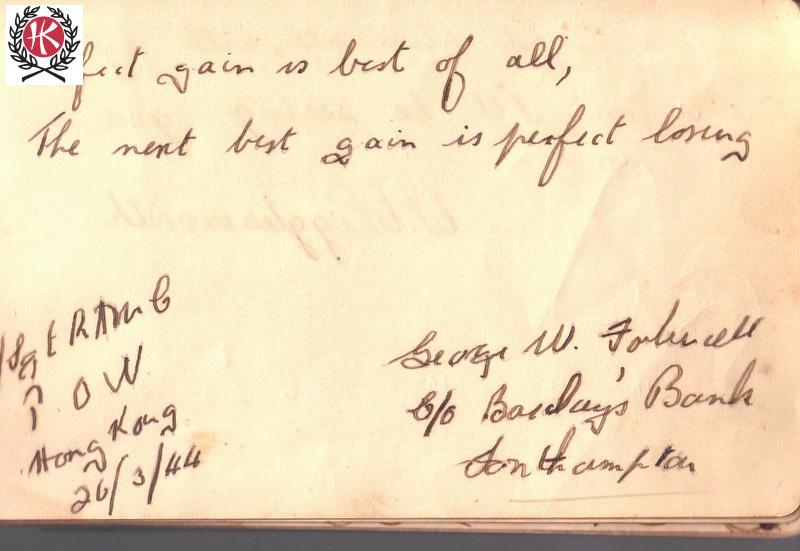 HK
fect gain is best of all,
The next best gain is perfect losing
Sgt RAMC
P O W
Hong Kong
26/3/44
George W.
C/o Barclay's Bank
Southampton